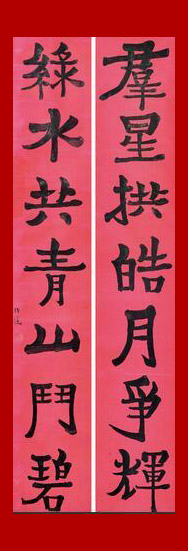 羣星拱皓月爭輝
綠水共青山鬥碧